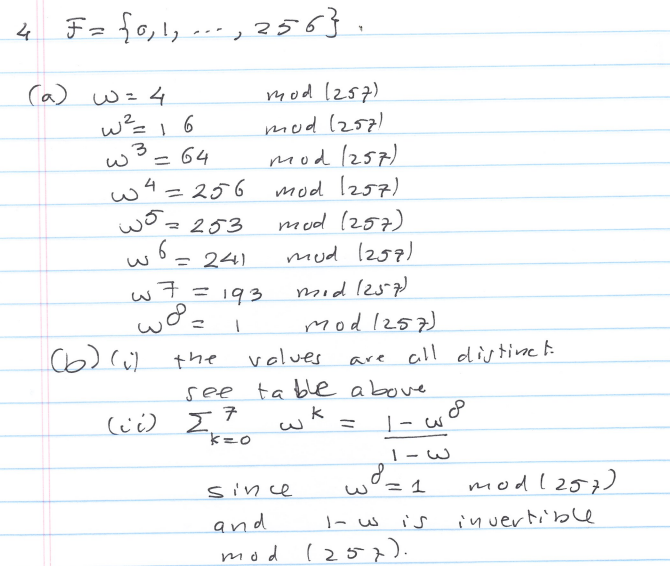 4 F = {0, 1, ..., 256}.
(a) w = 4 mod (257)
w² = 16 mod (257)
w³ = 64 mod (257)
w⁴ = 256 mod (257)
w⁵ = 253 mod (257)
w⁶ = 241 mod (257)
w⁷ = 193 mod (257)
w⁸ = 1 mod (257)
(b) (i) the values are all distinct.
see table above
(ii) Σ_{k=0}^{7} w^k = (1 - w⁸) / (1 - w)
since w⁸ = 1 mod (257)
and 1 - w is invertible
mod (257).